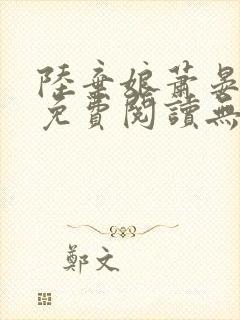 陸棄娘蕭晏
免費閱讀無
鄭文